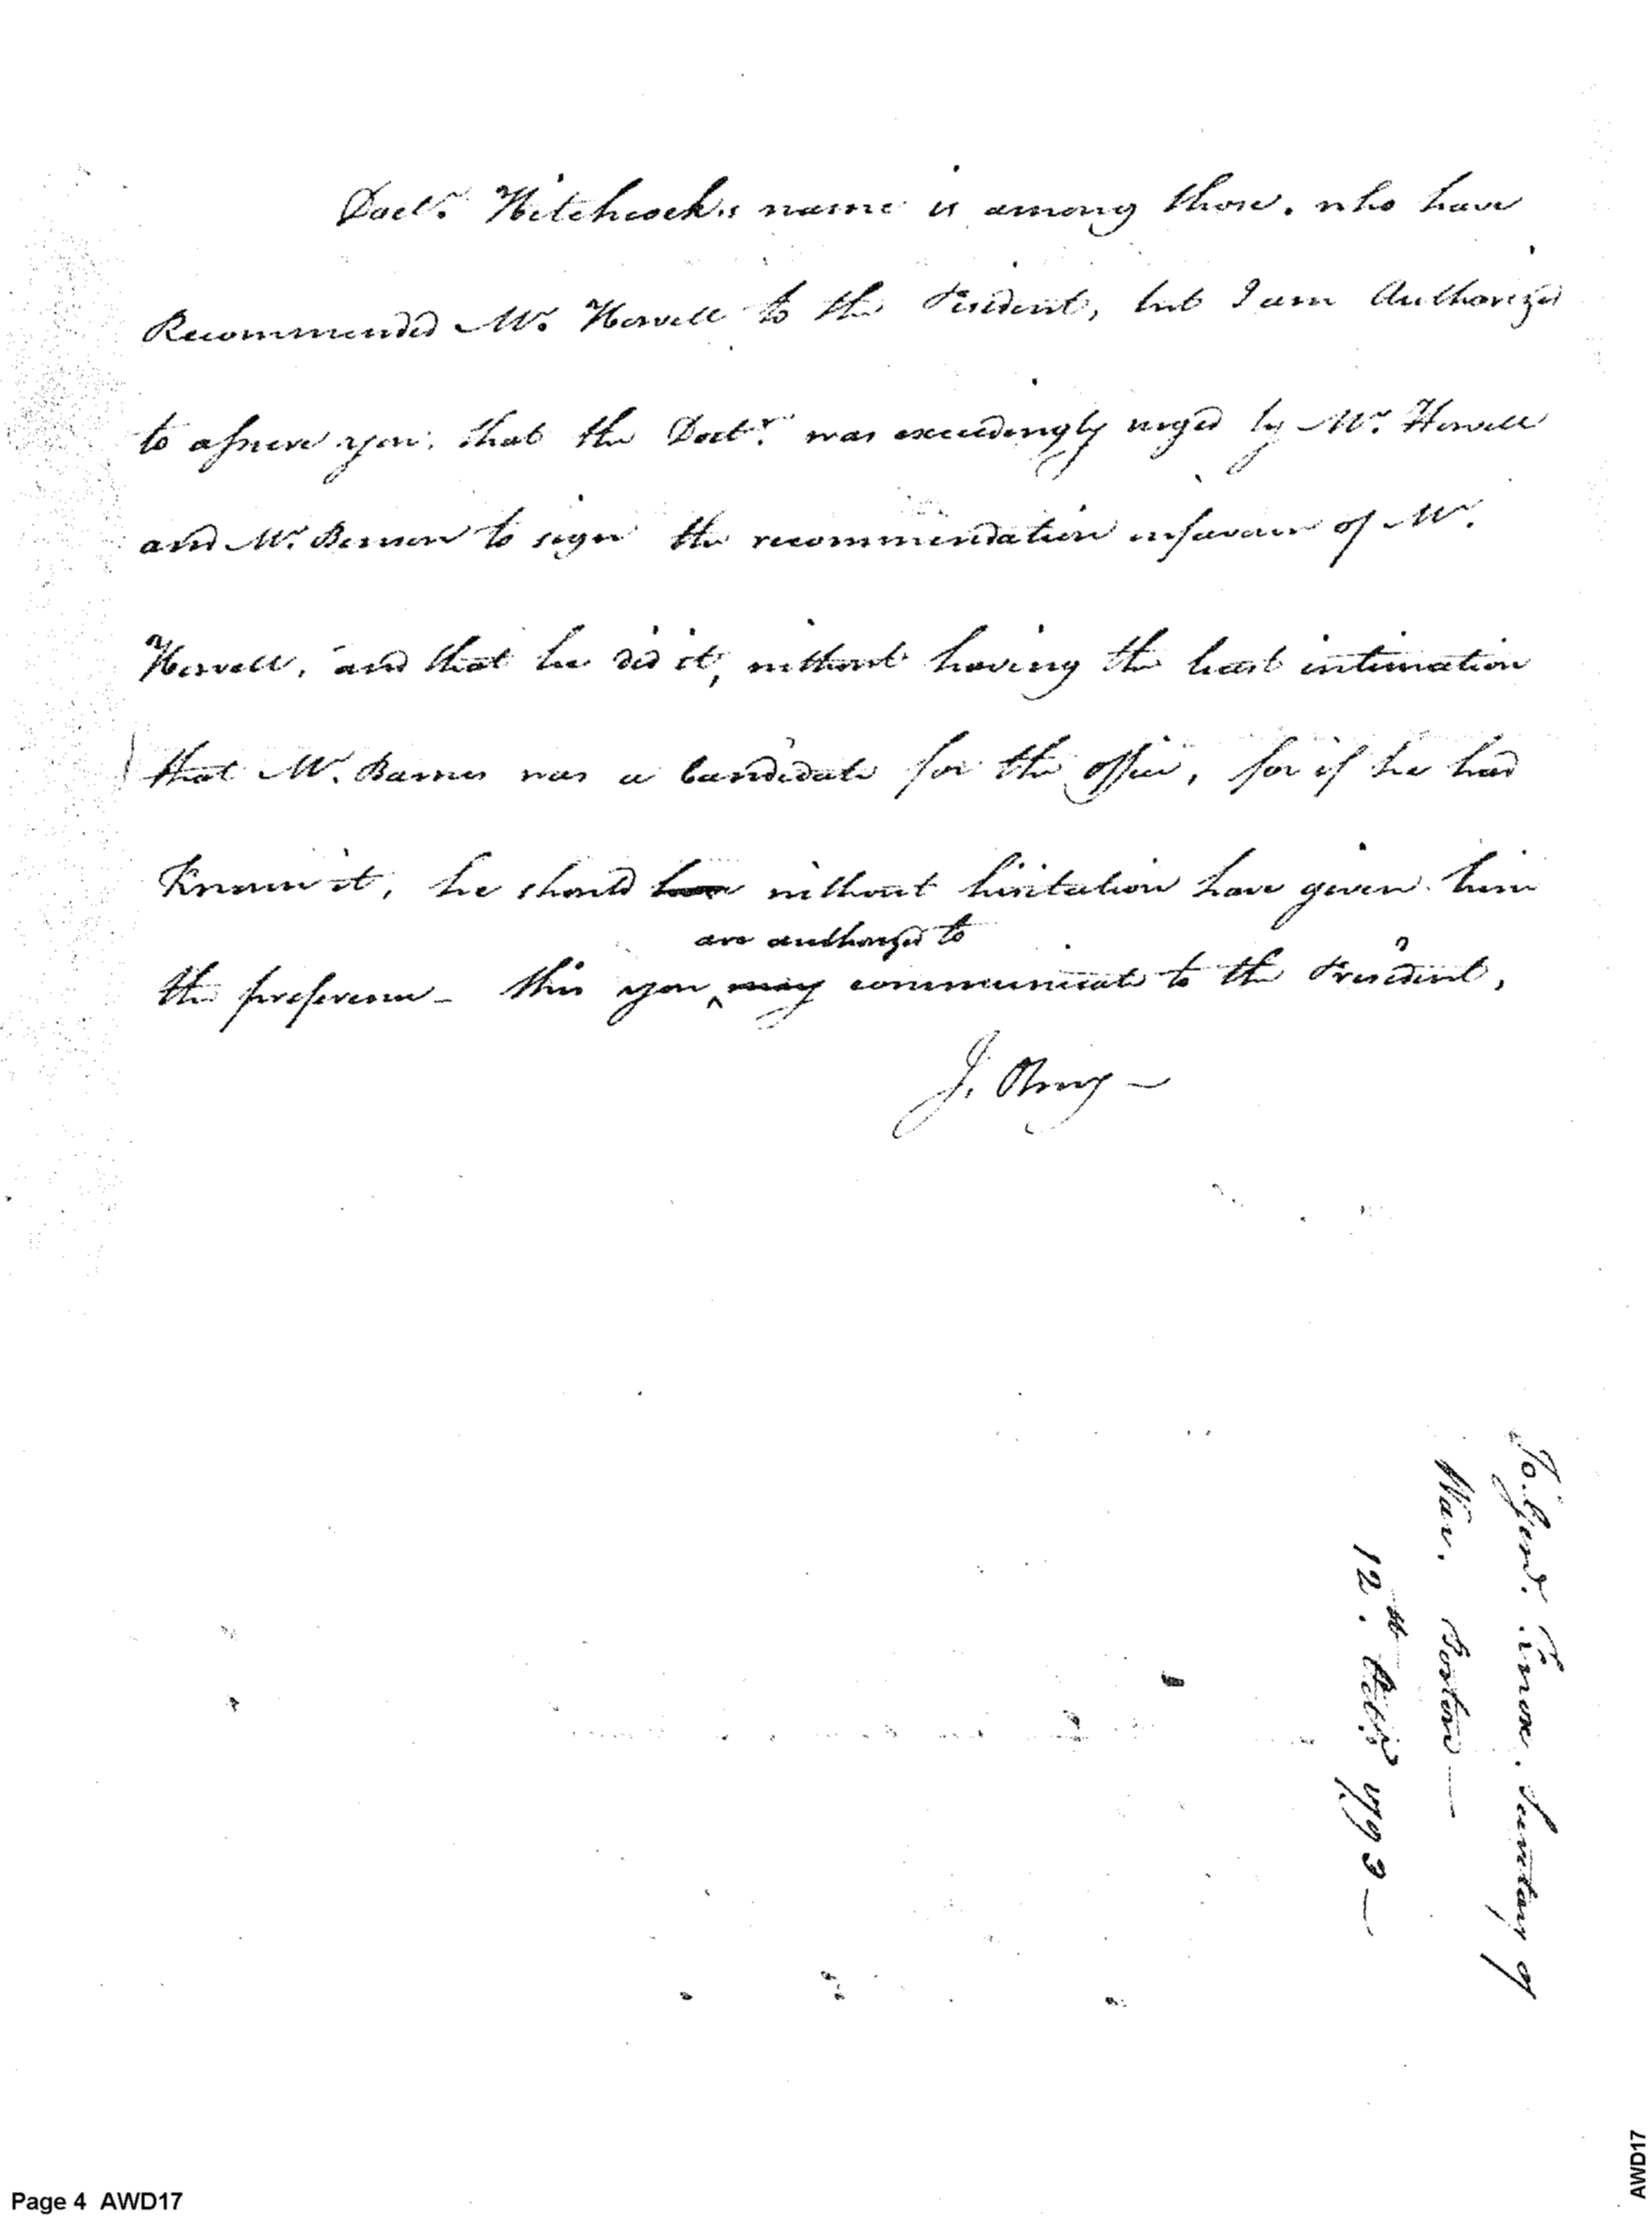 Doctr. Hitchcock's name is among those, who have
Recommended Mr. Howell to the President, but I am Authorized
to assure you, that the Doctr. was exceedingly urged by Mr. Howell
and Mr. to sign the recommendation infavour of Mr.
Howell, and that he did it, without having the least intimation
that Mr. Barnes was a Candidate for the office, for if he had
Known it, he should have without hesitation have given him
are authorized to
the preference - this you may communicate to the President,
J. Olney -
To Genl. Knox. Secretary of
War. Boston -
12th. Octbr. 1793 -
Page 4 AWD17
AWD17